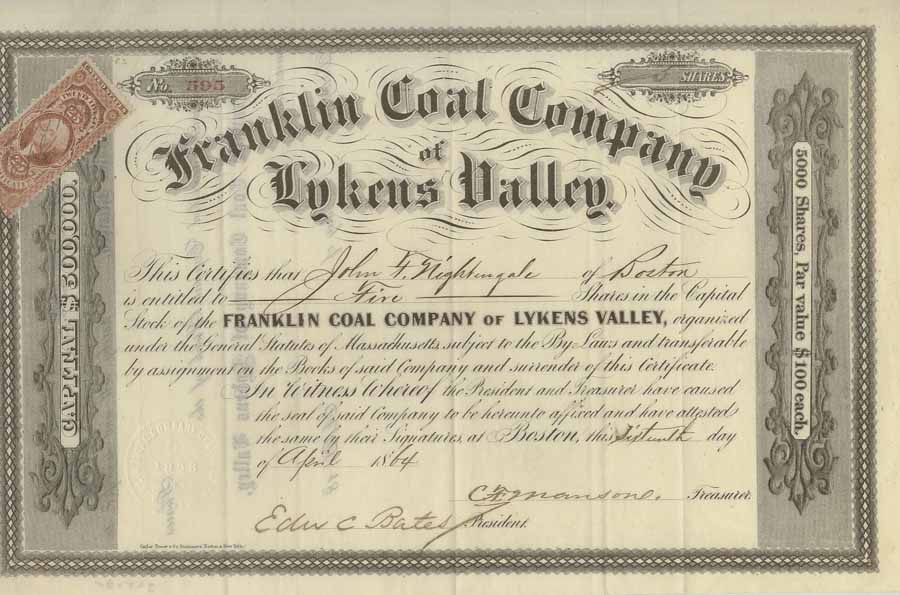 No. 595
5 SHARES
Franklin Coal Company
of
Lykens Valley.
CAPITAL $500,000.
5000 Shares, Par value $100 each.
This Certifies that John F. Nightingale of Boston
is entitled to Five Shares in the Capital
Stock of the FRANKLIN COAL COMPANY OF LYKENS VALLEY, organized
under the General Statutes of Massachusetts, subject to the By Laws and transferable
by assignment on the Books of said Company and surrender of this Certificate.
In Witness Whereof the President and Treasurer have caused
the seal of said Company to be hereunto affixed and have attested
the same by their Signatures, at Boston, this Sixteenth day
of April 1864
Treasurer.
Bates President.